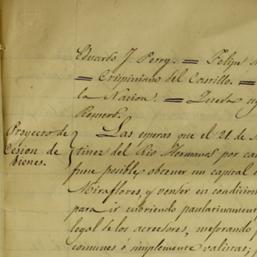 Eduardo J. Perry. = Felipe
= Crispiniano del Castillo. =
la Nacion. = Queda
Proyecto de
Cesion de
bienes.
Las epocas que el 21 de
tinez del Rio Hermanos por
fuese posible obtener un capital
Miraflores, y vender en condicion
para ir cubriendo paulatinamente
legal de los acreedores, mejorando
comunes ó simplemente valistas,